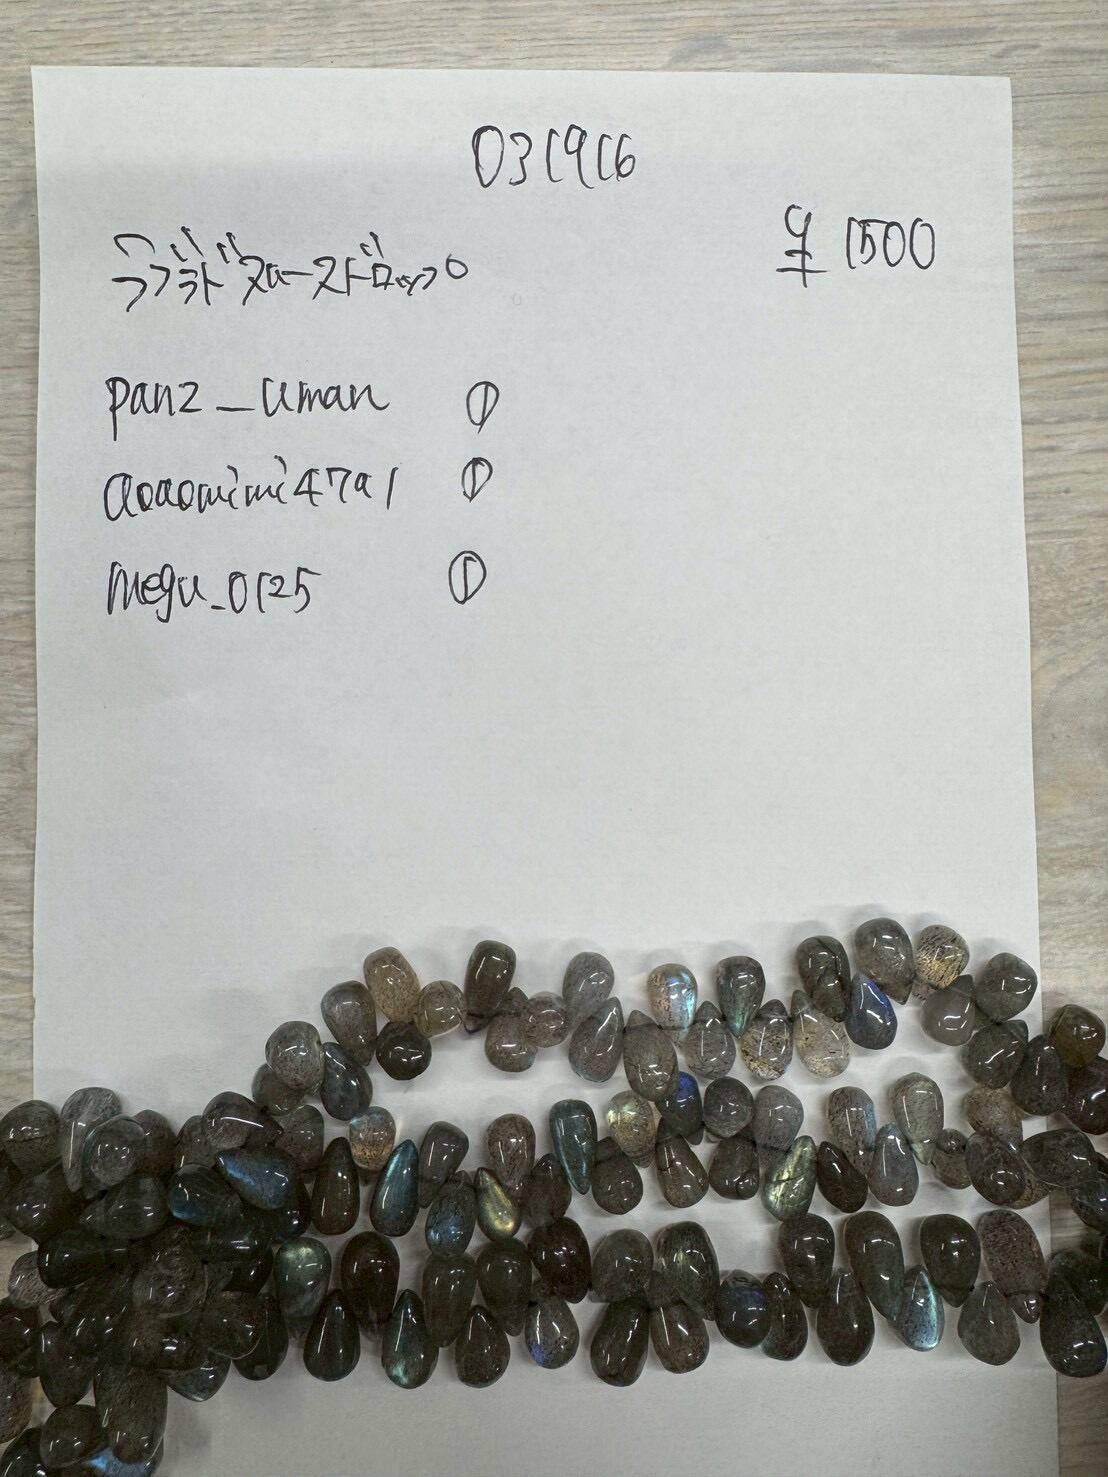 031916
¥1500
ラブラドスムースドロップ
panz_uman ①
aoaomimi4791 ①
megu_0125 ①